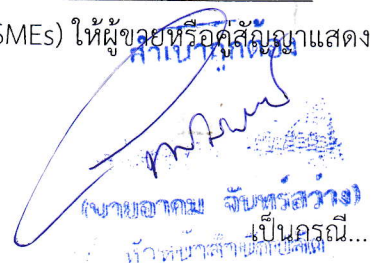 SMEs) ให้ผู้ขายหรือคู่สัญญาแสดง
สำเนาถูกต้อง
(นายอาคม จันทร์สว่าง)
เป็นกรณี...